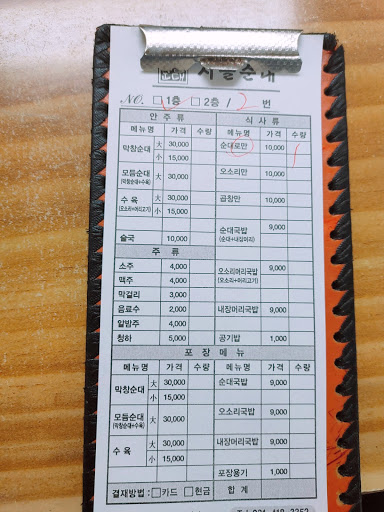 시골순대
NO. □ 1층 □ 2층 / 2 번
안 주 류 식 사 류
메뉴명 가격 수량 메뉴명 가격 수량
막창순대 大 30,000 순대로만 10,000 /
小 15,000
오소리만 10,000
모듬순대 (막창순대+수육) 大 30,000
곱창만 10,000
수 육 (오소리+머리고기) 大 30,000
小 15,000
순대국밥 (순대+내장머리) 9,000
술국 10,000
주 류
소주 4,000 오소리머리국밥 (오소리+머리고기) 9,000
맥주 4,000
막걸리 3,000
음료수 2,000 내장머리국밥 9,000
알밤주 4,000
청하 5,000 공기밥 1,000
포 장 메 뉴
메뉴명 가격 수량 메뉴명 가격 수량
막창순대 大 30,000 순대국밥 9,000
小 15,000
모듬순대 (막창순대+수육) 大 30,000 오소리국밥 9,000
수 육 大 30,000 내장머리국밥 9,000
小 15,000
포장용기 1,000
결재방법: □카드 □현금 합 계